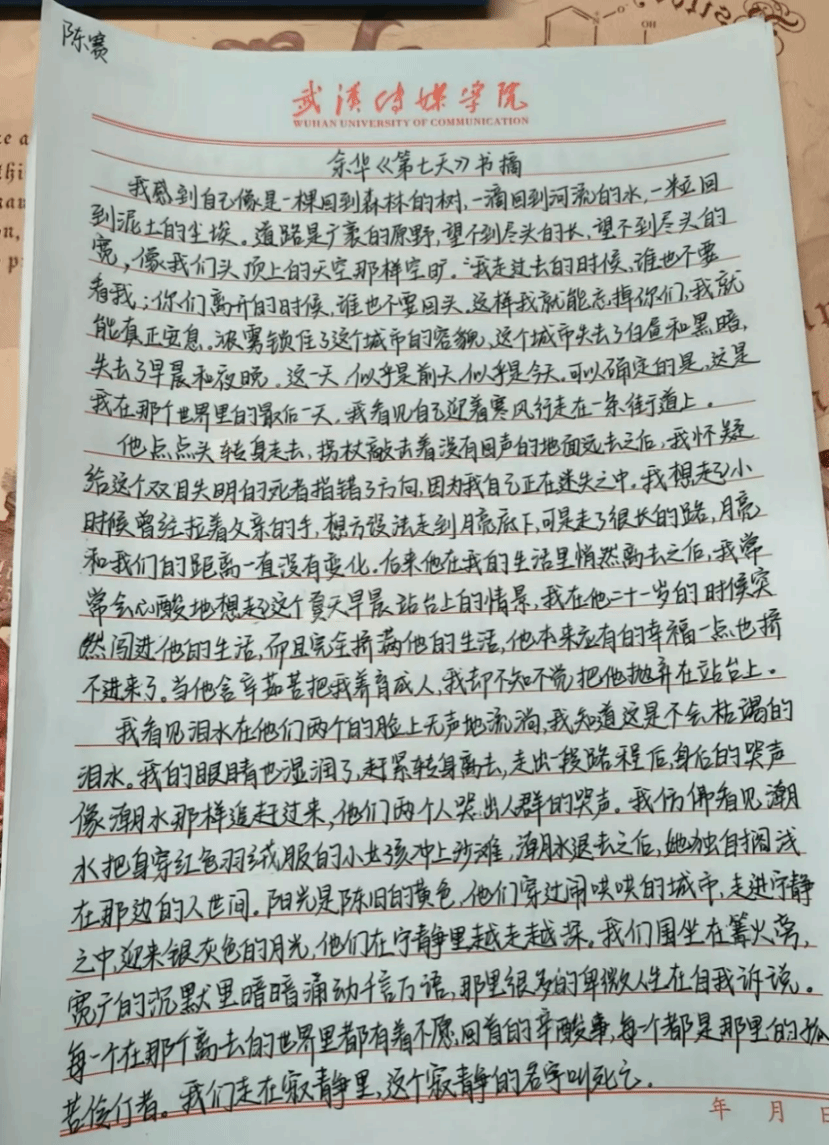 陈赛
武汉传媒学院
WUHAN UNIVERSITY OF COMMUNICATION
余华《第七天》书摘
我感到自己像是一棵回到森林的树,一滴回到河流的水,一粒回
到泥土的尘埃。道路是广袤的原野,望不到尽头的长,望不到尽头的
宽,像我们头顶上的天空那样空旷。“我走过去的时候,谁也不要
看我;你们离开的时候,谁也不要回头,这样我就能忘掉你们,我就
能真正安息。浓雾锁住了这个城市的容貌,这个城市失去了白昼和黑暗,
失去了早晨和夜晚。这一天,似乎是前天,似乎是今天。可以确定的是,这是
我在那个世界里的最后一天。我看见自己迎着寒风行走在一条街道上。
他点点头转身走去,拐杖敲击着没有回声的地面远去之后,我怀疑
给这个双目失明的死者指错了方向,因为我自己正在迷失之中。我想起了小
时候曾经拉着父亲的手,想方设法走到月亮底下,可是走了很长的路,月亮
和我们的距离一直没有变化。后来他在我的生活里悄然离去之后,我常
常会心酸地想起这个夏天早晨站台上的情景,我在他二十一岁的时候突
然闯进他的生活,而且完全挤满他的生活,他本来应有的幸福一点也挤
不进来了。当他含辛茹苦把我养育成人,我却不知不觉把他抛弃在站台上。
我看见泪水在他们两个的脸上无声地流淌,我知道这是不会枯竭的
泪水。我的眼睛也湿润了,赶紧转身离去,走出一段路程后,身后的哭声
像潮水那样追赶过来,他们两个人哭出人群的哭声。我仿佛看见潮
水把身穿红色羽绒服的小女孩冲上沙滩,潮水退去之后,她独自搁浅
在那边的人世间。阳光是陈旧的黄色,他们穿过闹哄哄的城市,走进宁静
之中,迎来银灰色的月光,他们在宁静里越走越深。我们围坐在篝火旁,
宽广的沉默里暗暗涌动千言万语,那里很多的卑微人生在自我诉说。
每一个在那个离去的世界里都有着不愿回首的辛酸事,每一个都是那里的孤
苦伶仃者。我们走在寂静里,这个寂静的名字叫死亡。
年 月 日